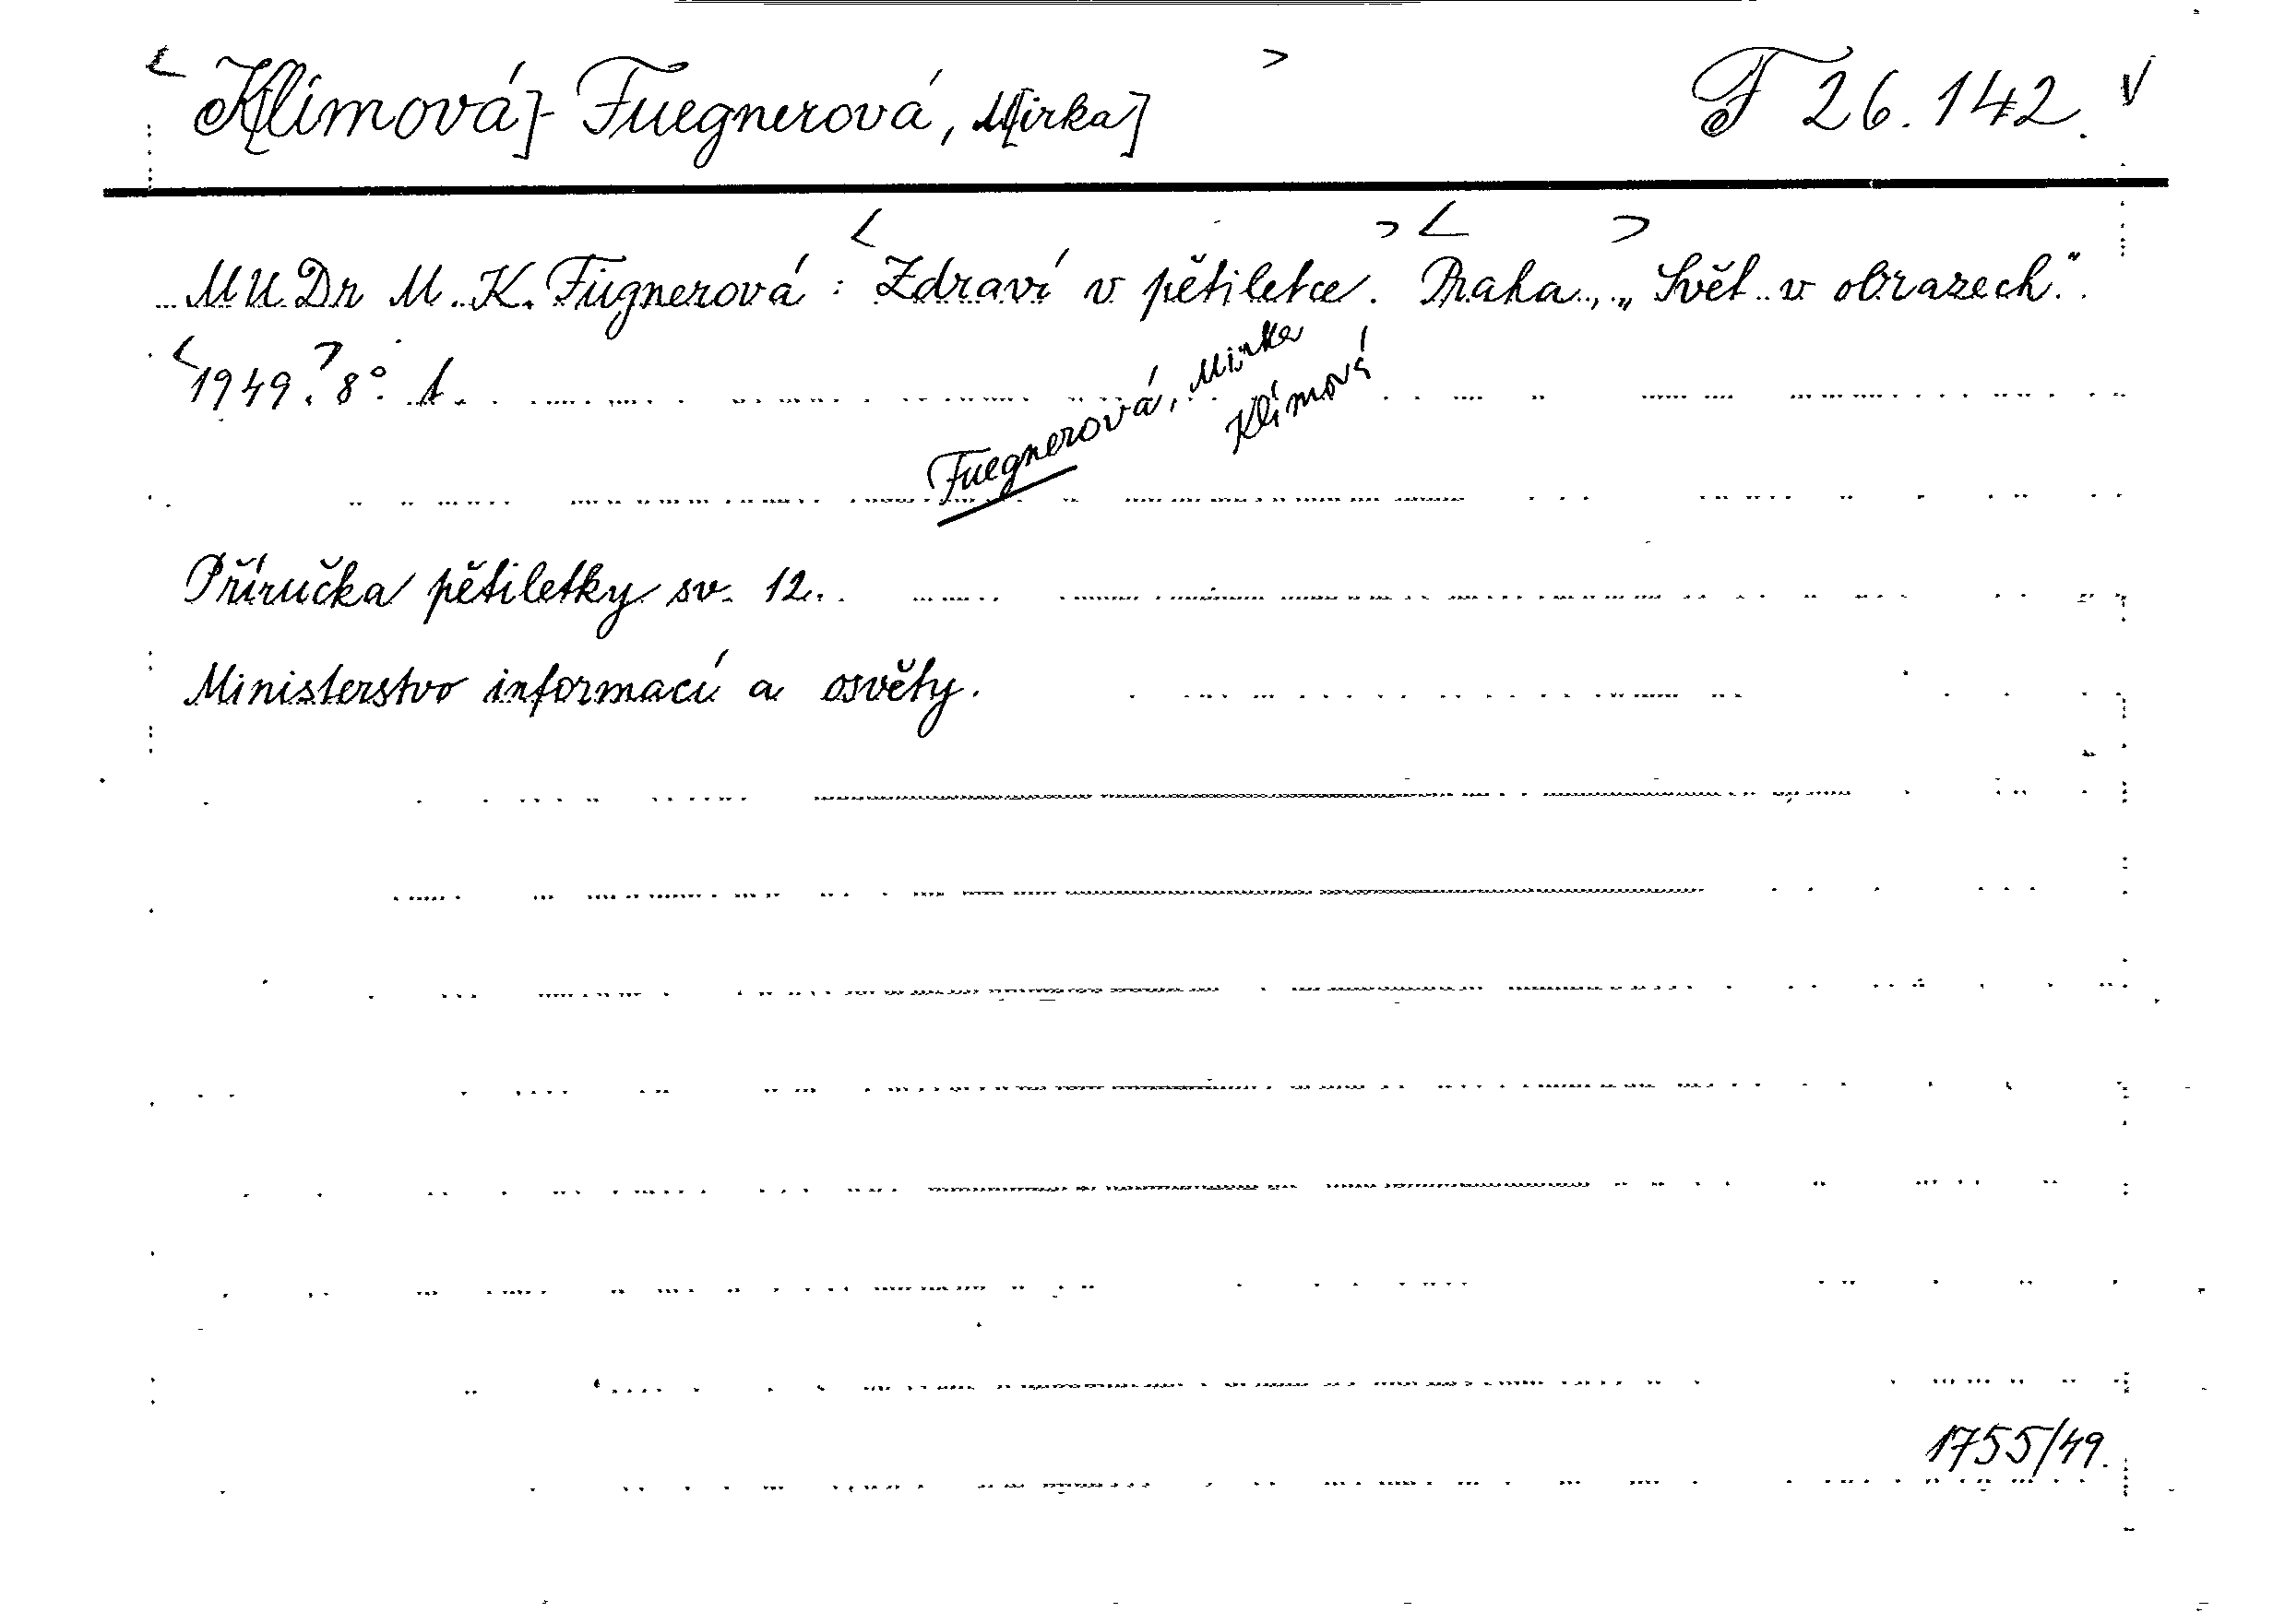 < K[límová]- Fuegnerová, M[irka] > F 26.142. V
MUDr M. K. Fügnerová: < Zdraví v pětiletce. > < Praha, > „Svět v obrazech."
< 1949. > 8°. 1.
Fuegnerová, Mirka
Klímová
Příručka pětiletky sv. 12.
Ministerstvo informací a osvěty.
1755/49.